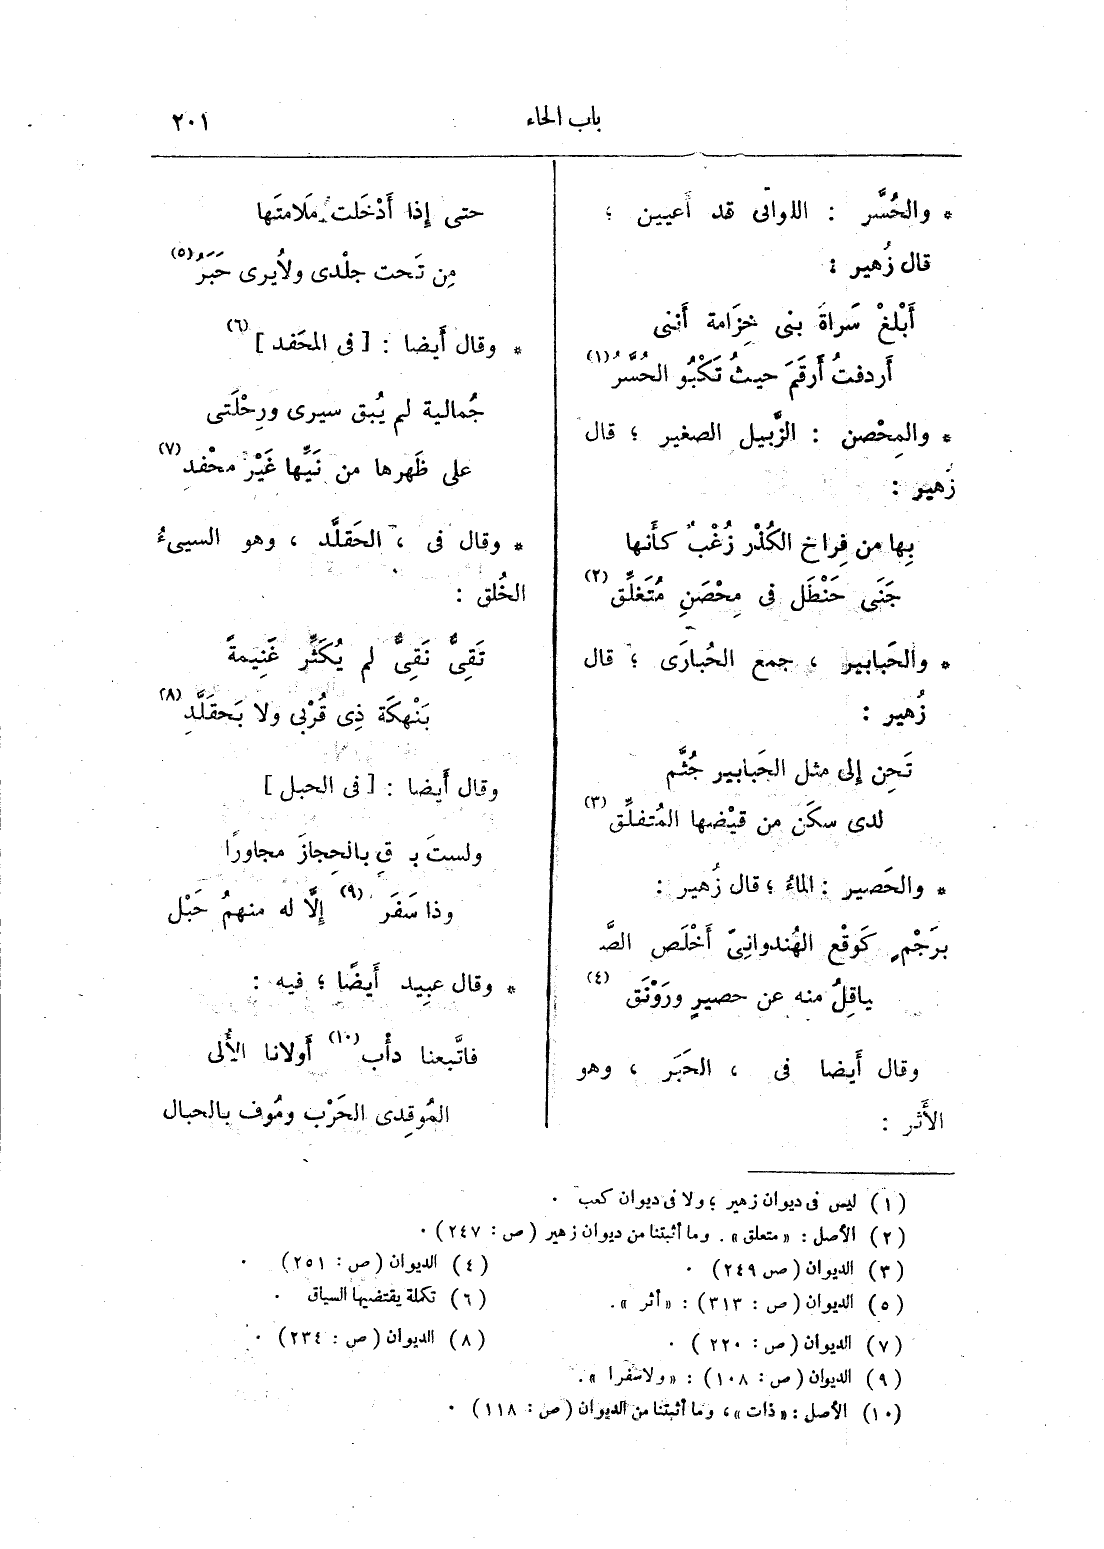 باب الحاء
٢٠١
* والحُسَّر : اللواتى قد أعيين ؛
قال زُهير :
أَبْلغْ سَراةَ بنى خِزَامة أَننى
أَردفتُ أَرقَمَ حيثُ تَكْبُو الحُسَّرُ(١)
* والمِحْصن : الزَّبيل الصغير ؛ قال
زُهير :
بِها من فِراخ الكُدْر زُغْبٌ كأَنها
جَنَى حَنْطَل فى مِحْصَنِ مُتَغلِّق (٢)
* والحَبابير ، جمع الحُبارَى ؛ قال
زُهير :
تَحِن إلى مثل الحَبابير جُثَّم
لدى سكَن من قَيْضها المُتفلِّق (٣)
* والحَصير : الماءُ ؛ قال زُهير :
برَجْمٍ كَوقْع الهُندوانِىّ أَخْلَص الصَّـ
ياقِلُ منه عن حصيرٍ ورَوْنَق (٤)
وقال أَيضا فى ، الحَبَر ، وهو
الأَثر :
حتى إِذا أَدْخَلت مَلامتَها
مِن تَحت جلْدى ولايرى حَبَرُ (٥)
* وقال أَيضا : [ فى المَحفد ] (٦)
جُمالية لم يُبق سيرى ورِحْلَتى
على ظَهرها من نَيِّها غَيْرَ محْفد (٧)
* وقال فى ، الحَقلَّد ، وهو السيىءُ
الخُلق :
تَقِىٌّ نَقِىٌّ لم يُكَثِّر غَنِيمةً
بَنْهكَة ذِى قُرْبى ولا بَحقَلَّدِ (٨)
وقال أَيضا : [ فى الحبل ]
ولستَ بـ قٍ بالحِجازَ مجاورًا
وذا سَفَر (٩) إلَّا له منهمُ حَبْل
* وقال عبِيد أَيضًا ؛ فيه :
فاتَّبعنا دأْب (١٠) أَولانا الأُلى
المُوقِدى الحَرْب ومُوف بالحبال
(١) ليس فى ديوان زهير ؛ ولا فى ديوان كعب .
(٢) الأصل : « متعلق » . وما أثبتنا من ديوان زهير ( ص : ٢٤٧ ) .
(٣) الديوان ( ص ٢٤٩ ) .
(٤) الديوان ( ص : ٢٥١ ) .
(٥) الديوان ( ص : ٣١٣ ) : « أثر » .
(٦) تكملة يقتضيها السياق .
(٧) الديوان ( ص : ٢٢٠ ) .
(٨) الديوان ( ص : ٢٣٤ ) .
(٩) الديوان ( ص : ١٠٨ ) : « ولا سفرا » .
(١٠) الأصل : « ذات » ، وما أثبتنا من الديوان ( ص : ١١٨ ) .